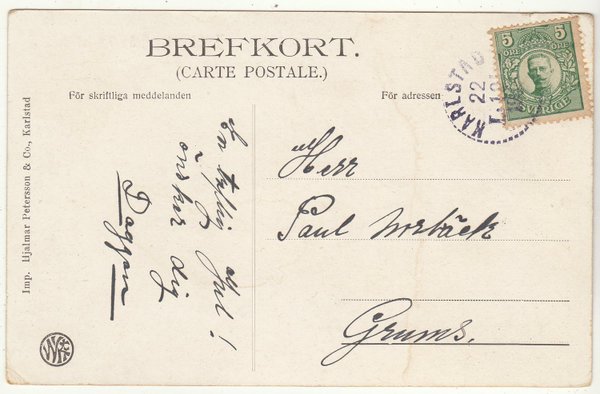 BREFKORT.
(CARTE POSTALE.)
För skriftliga meddelanden
För adressen
Imp. Hjalmar Petersson & Co., Karlstad
En
Jul!
önskar dig
Herr
Paul
Grums.
5 5
ÖRE ÖRE
SVERIGE
KARLSTAD
22